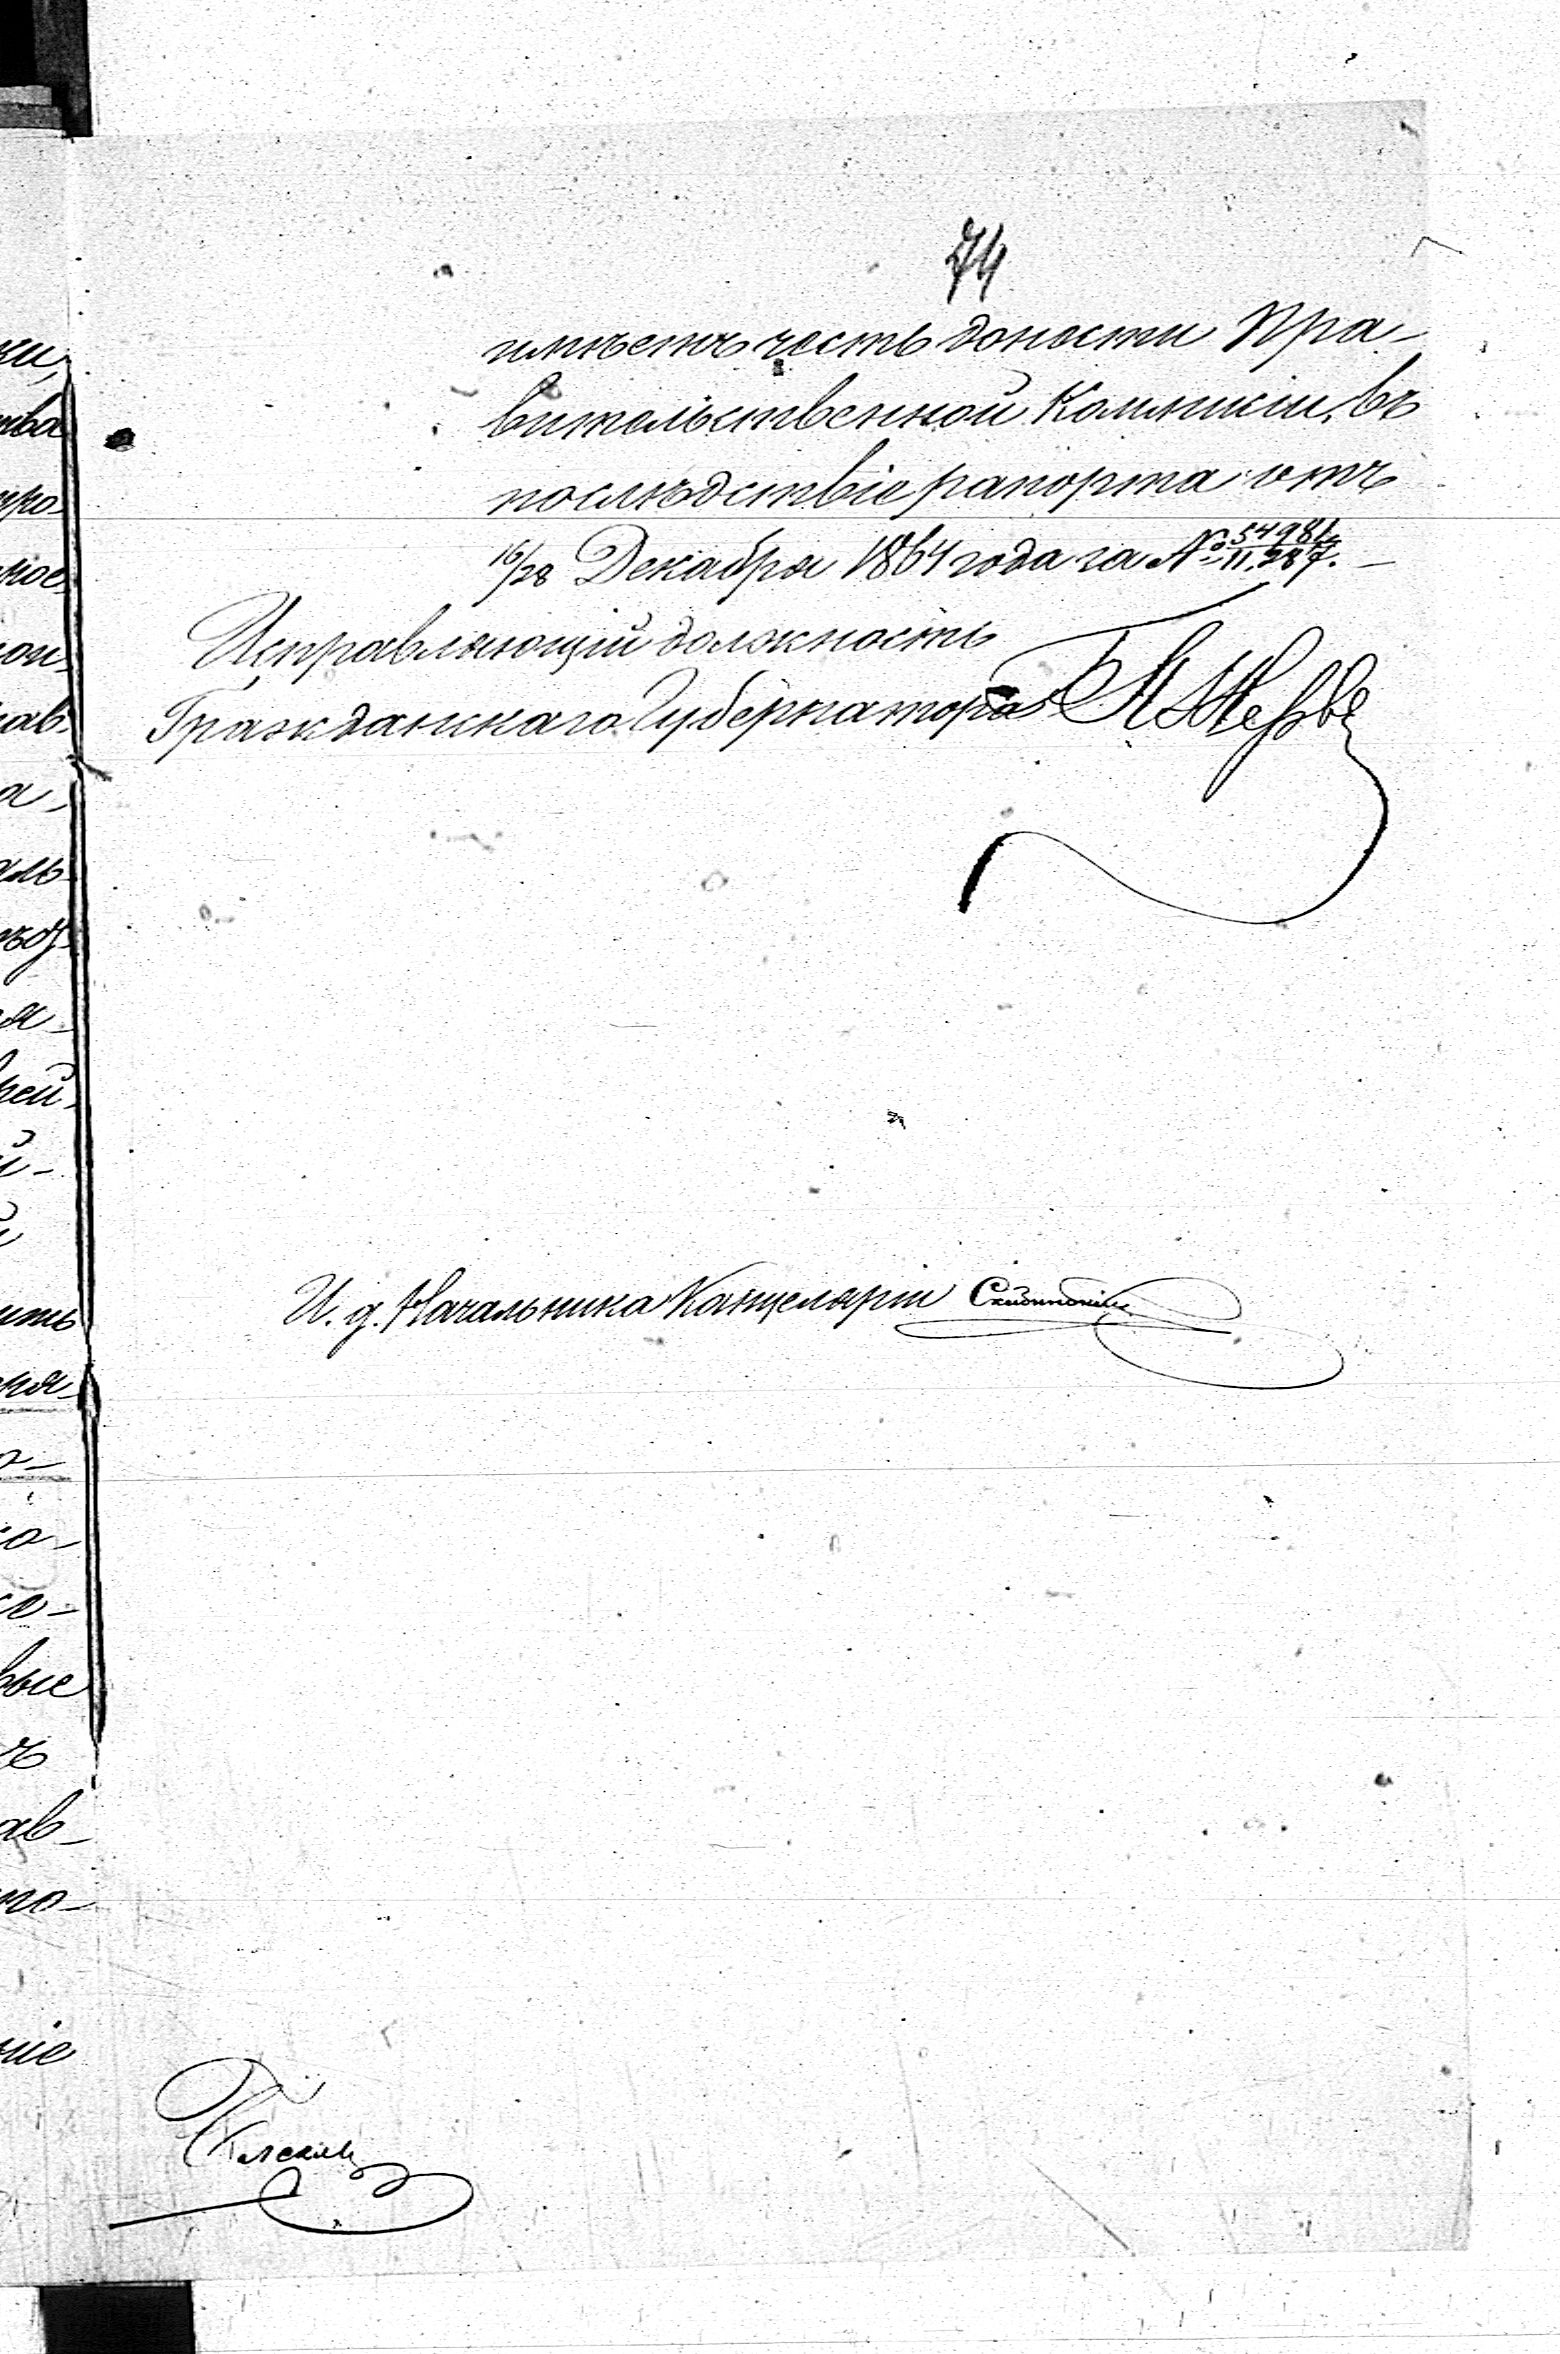 74
имѣетъ честь донести Пра-
вительственной Коммисіи, въ
послѣдствіе рапорта отъ
16/28 Декабря 1864 года за № 54981/11,287. —
Исправляющій должность
Гражданскаго Губернатора
И. д. Начальника Канцеляріи
ки,
ства
ой
а,
аль
рей
ить
кя-
о-
вые
ъ
ав-
го-
ніе